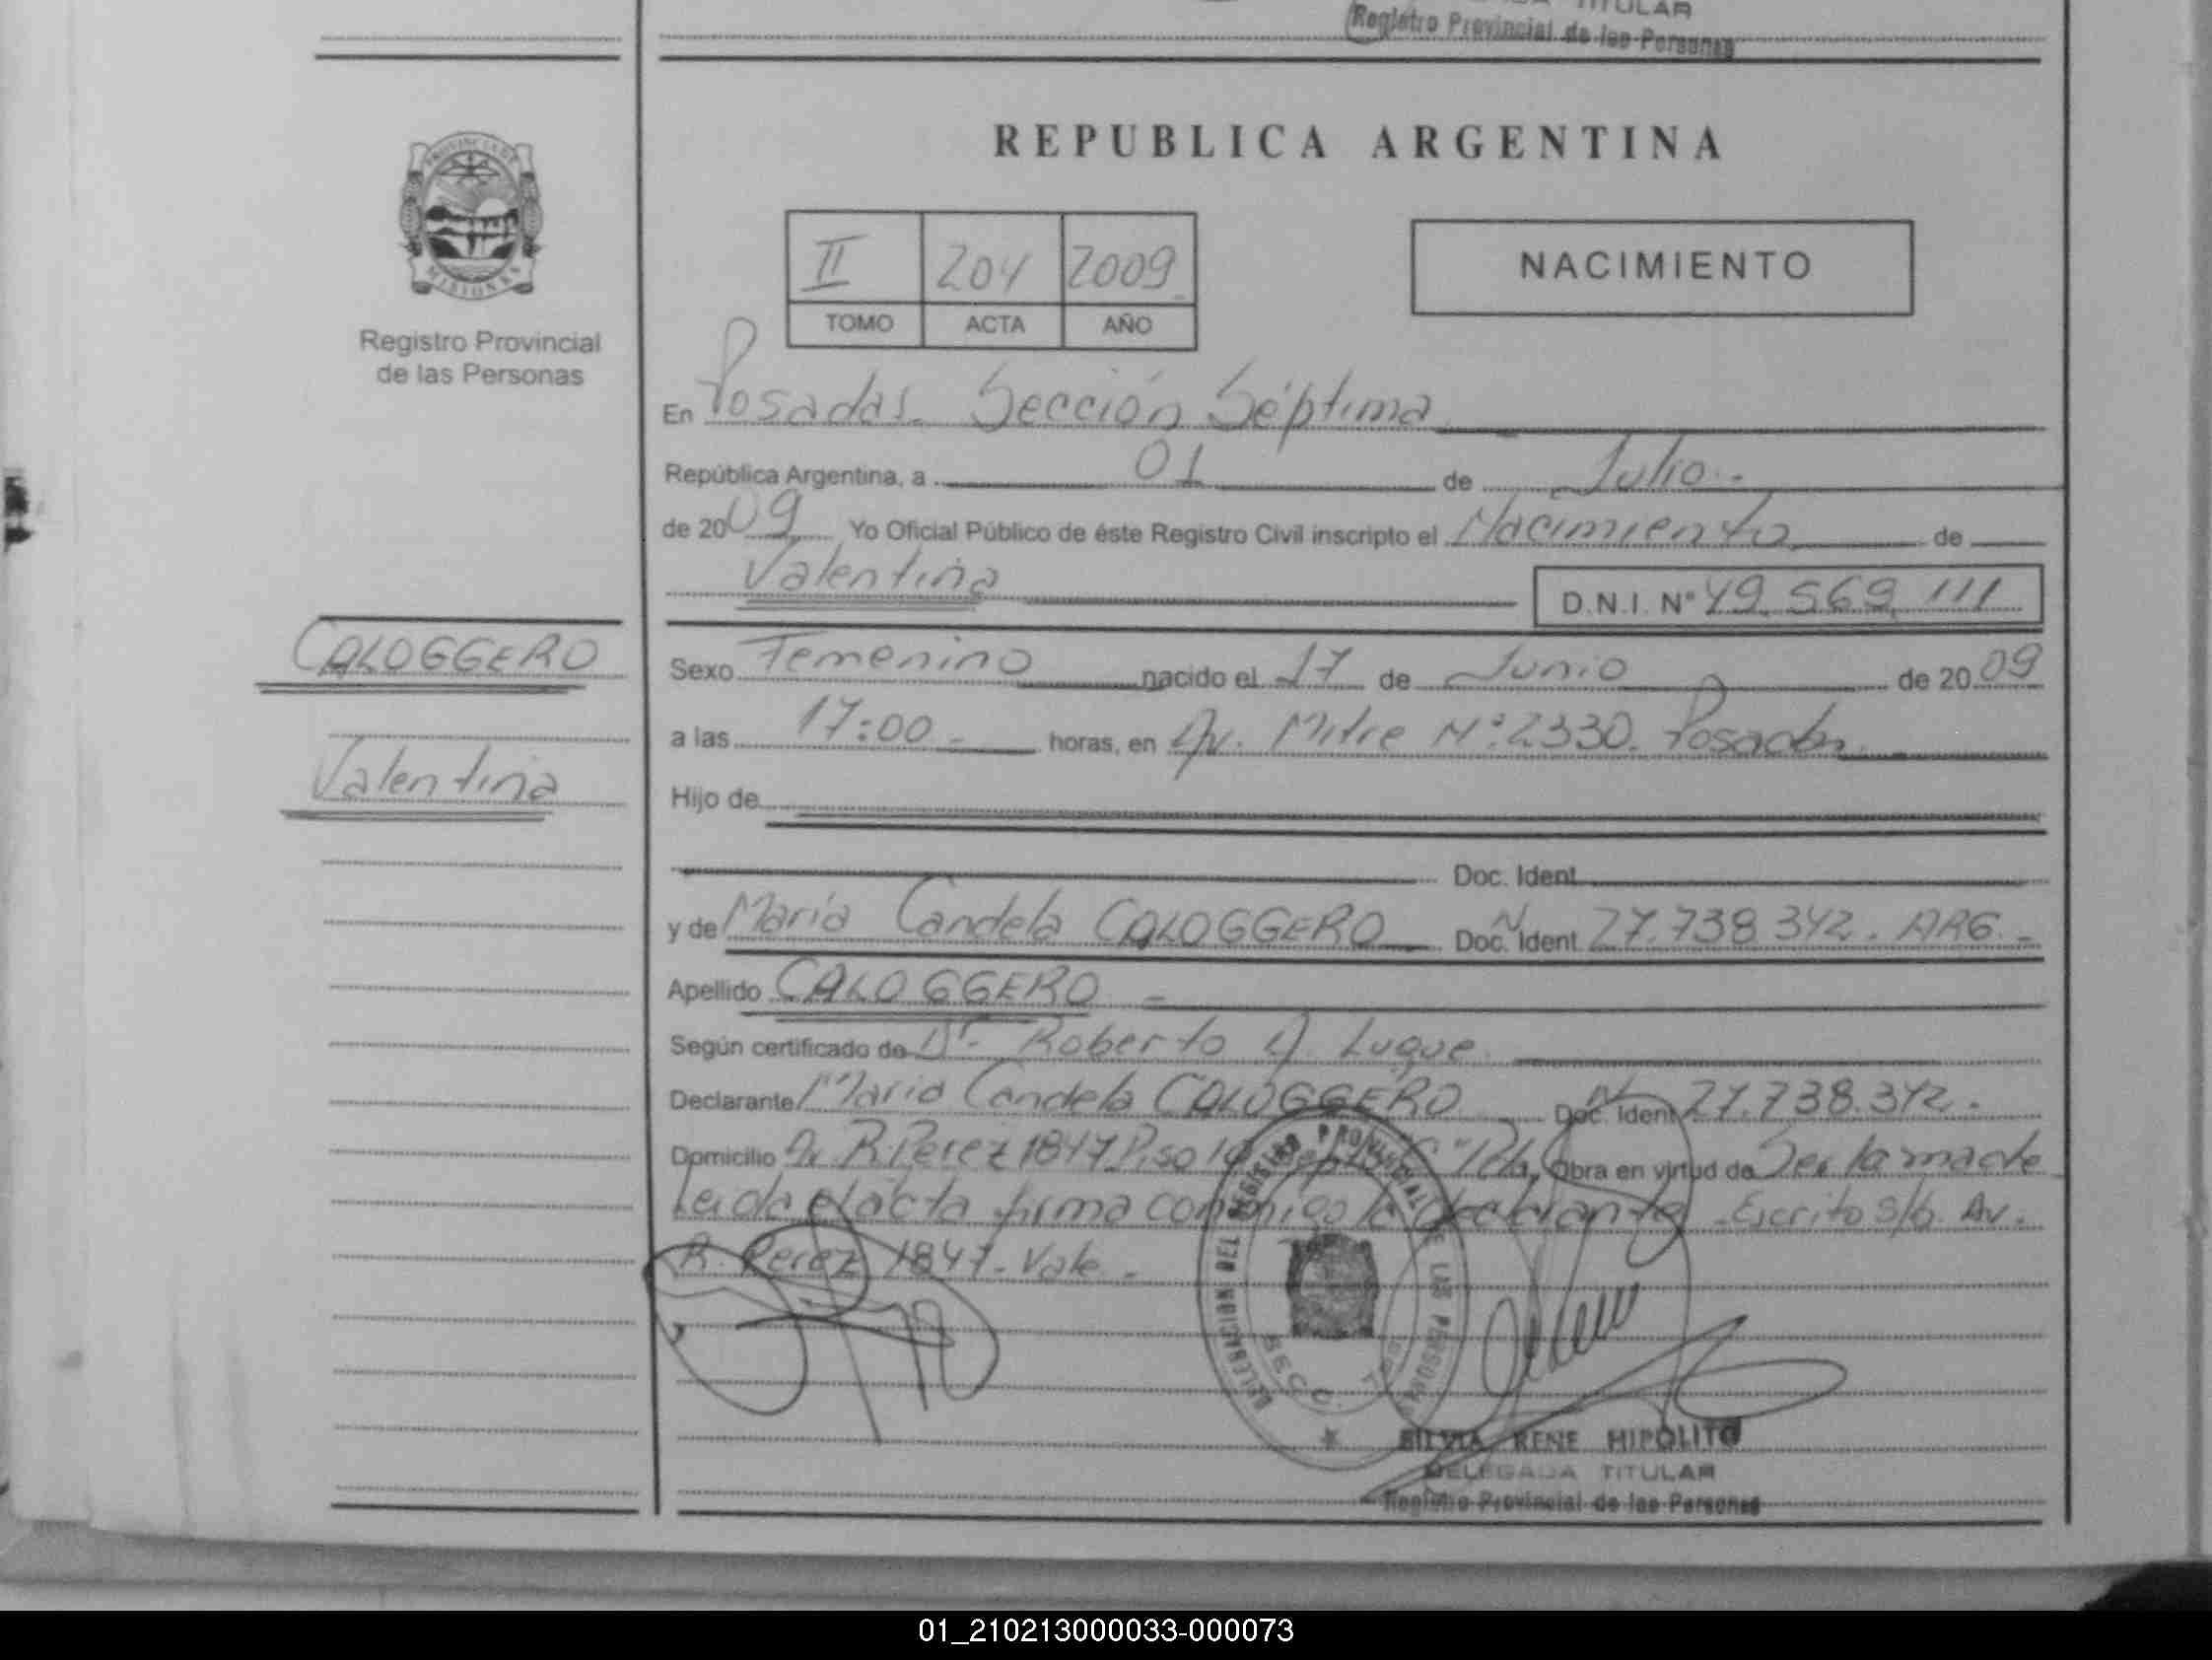 TITULAR
Registro Provincial de las Personas
PROVINCIA DE
MISIONES
Registro Provincial
de las Personas
REPUBLICA ARGENTINA
II 204 2009
TOMO ACTA AÑO
NACIMIENTO
En Posadas Sección Séptima
República Argentina, a 01 de Julio
de 2009 Yo Oficial Público de éste Registro Civil inscripto el Nacimiento de
Valentina D.N.I. Nº 49.569.111
CALOGGERO
Valentina
Sexo Femenino nacido el 17 de Junio de 2009
a las 17:00 horas, en Av. Mitre Nº 2330. Posadas
Hijo de
Doc. Ident
y de María Candela CALOGGERO Doc. Ident N 27.738.342. ARG.
Apellido CALOGGERO
Según certificado de Dr. Roberto A. Luque
Declarante María Candela CALOGGERO Doc. Ident N 27.738.342.
Domicilio Av. R. Perez 1847 Piso Obra en virtud de Ser la madre
Leida el acta firma conmigo la declarante. Escrito s/b. Av.
R. Perez 1847. Vale.
DELEGACION DEL REGISTRO PROVINCIAL DE LAS PERSONAS
SILVIA RENE HIPOLITO
DELEGADA TITULAR
Registro Provincial de las Personas
01_210213000033-000073